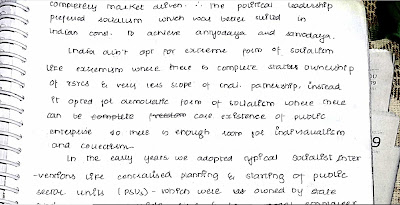 completely market driven. ∴ The political leadership
preferred socialism which was better suited in
Indian cond. to achieve antyodaya and sarvodaya.
India didn't opt for extreme form of socialism
like extremism where there is complete state ownership
of rsrcs & very less scope of indi. partnership, instead
it opted for democratic form of socialism where there
can be coexistence of public
enterprise so there is enough room for individualism
and collectism.
In the early years we adopted typical socialist inter
-ventions like centralised planning & starting of public
sector units (PSUs) - which were owned by state